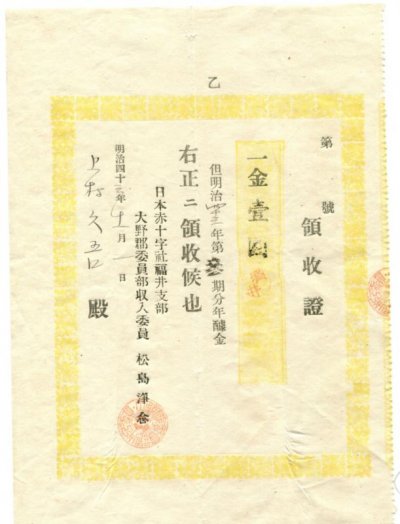 乙
第 號
領收證
一金壹圓
但明治四三年第 期分年醵金
右正ニ領收候也
日本赤十字社福井支部
大野郡委員部収入委員 松島
明治四十三年十一月 日
上村久吉 殿